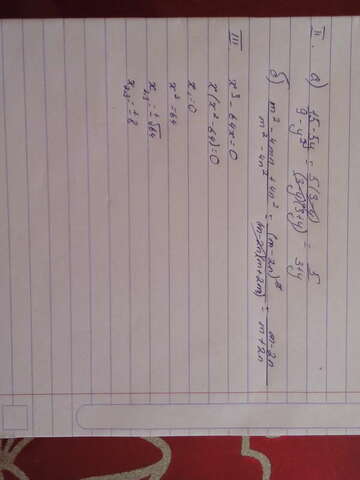 II. а) 15-5y / 9-y² = 5(3-y) / (3-y)(3+y) = 5 / 3+y
б) m²-4mn+4n² / m²-4n² = (m-2n)² / (m-2n)(m+2n) = m-2n / m+2n
III x³-64x=0
x(x²-64)=0
x₁=0
x²=64
x₂,₃=±√64
x₂,₃=±8